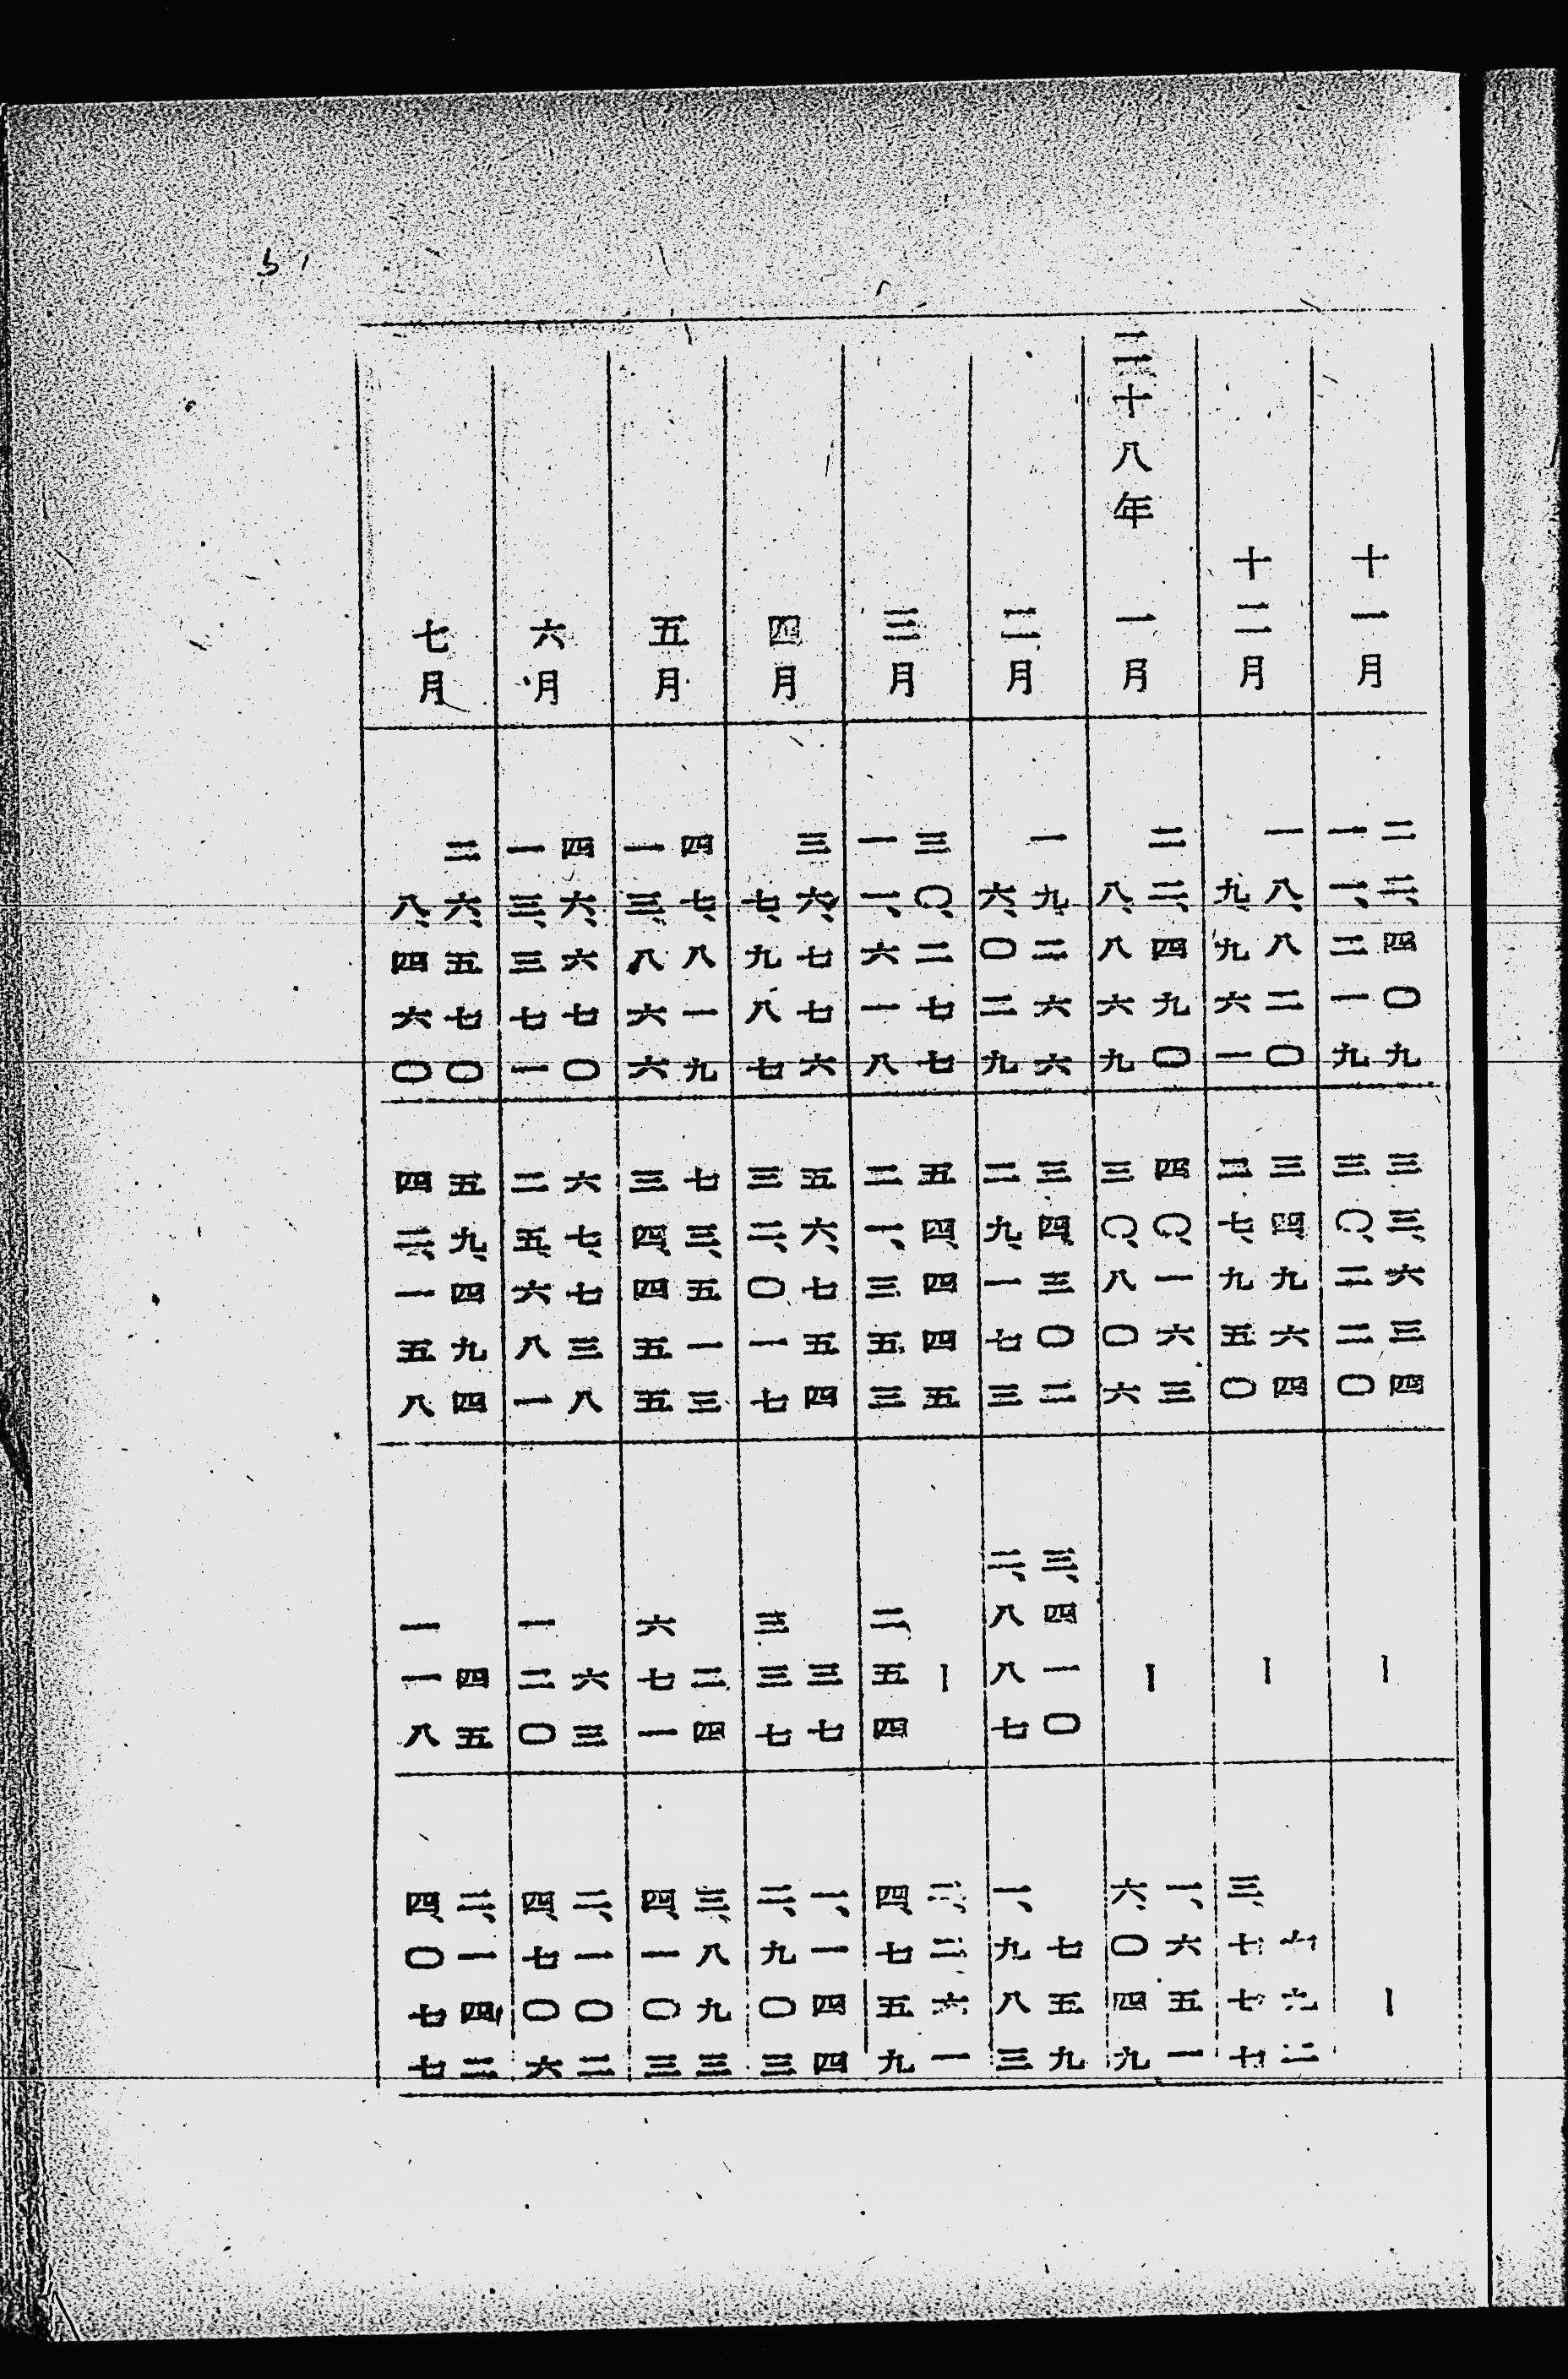 十一月
二二、四〇九
一一、二一九
三三、六三四
三〇、二二〇
|
|
十二月
一八、八二〇
九、九六一
三四、九六四
二七、九五〇
|
三、七七七
二十八年 一月
二二、四九〇
八、八六九
四〇、一六三
三〇、八〇六
|
一、六五一
六、〇四九
二月
一九、二六六
六、〇二九
三四、三〇二
二九、一七三
三、四一〇
二、八八七
七五九
一、九八三
三月
三〇、二七七
一一、六一八
五四、四四五
二一、三五三
|
二五四
二、二六一
四、七五九
四月
三六、七七六
七、九八七
五六、七五四
三二、〇一七
三七
三三七
一、一四四
二、九〇三
五月
四七、八一九
一三、八六六
七三、五一三
三四、四五五
二四
六七一
三、八九三
四、一〇三
六月
四六、六七〇
一三、三七一
六七、七三八
二五、六八一
六三
一二〇
二、一〇二
四、七〇六
七月
二六、五七〇
八、四六〇
五九、四九四
四二、一五八
四五
一一八
二、一四二
四、〇七七